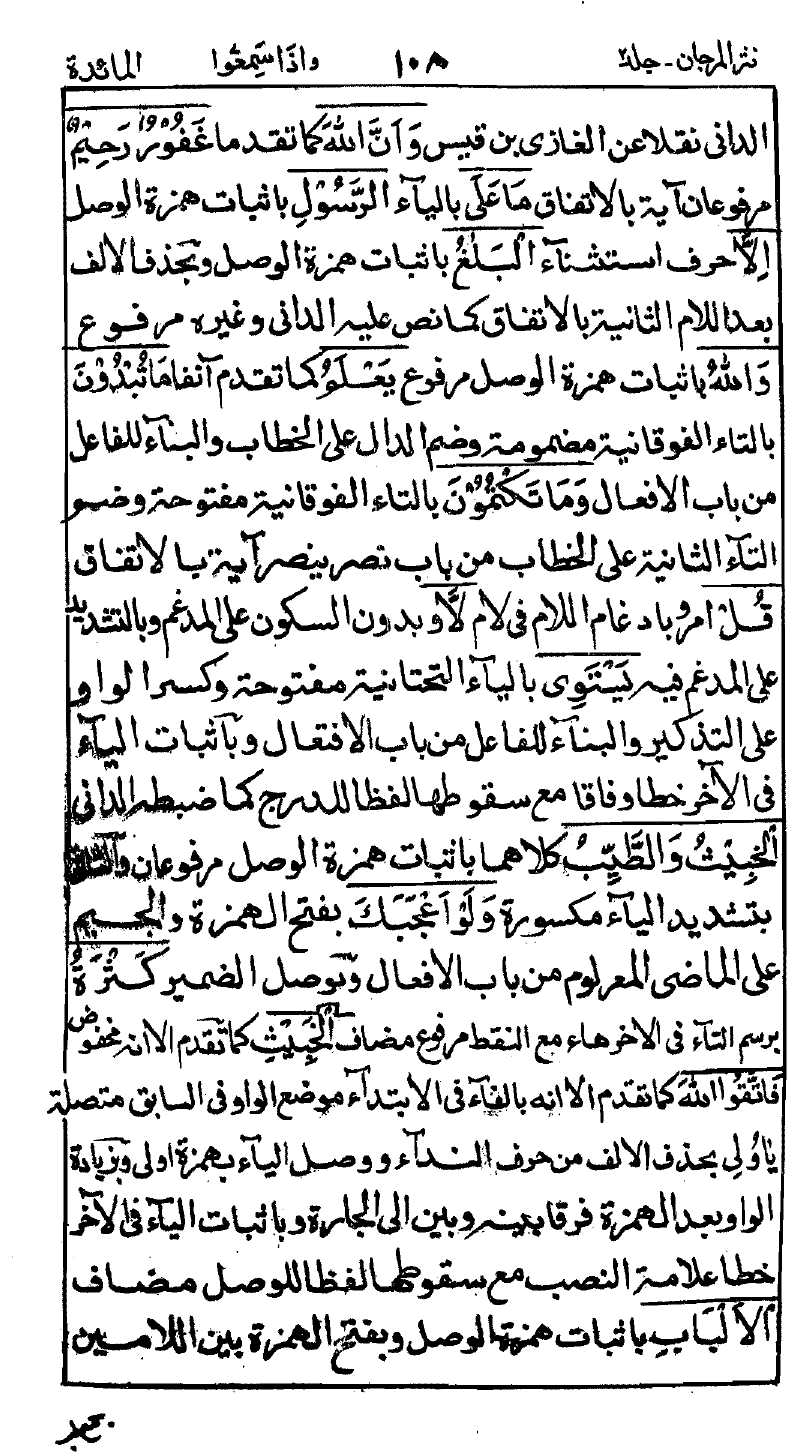 نثر المرجان - جلد ٢ ١٠٨ واذا سمعوا المائدة
الدانى نقلا عن الغازى بن قيس وَاَنَّ اللهَ كما تقدم ما غَفُورٌ رَحِيمٌ
مرفوعان آية بالاتفاق مَا عَلَى باليآء الرَّسُوْلِ باثبات همزة الوصل
اِلَّا حرف استثنآء الْبَلٰغُ باثبات همزة الوصل وبحذف الالف
بعد اللام الثانية بالاتفاق كما نص عليه الدانى وغيره مرفوع
وَاللهُ باثبات همزة الوصل مرفوع يَعْلَمُ كما تقدم آنفا مَا تُبْدُوْنَ
بالتاء الفوقانية مضمومة وضم الدال على الخطاب والبنآء للفاعل
من باب الافعال وَمَا تَكْتُمُوْنَ بالتاء الفوقانية مفتوحة وضم
التآء الثانية على الخطاب من باب نصر ينصر آية بالاتفاق
قُلْ امر وبادغام اللام فى لام لَّا وبدون السكون على المدغم وبالتشديد
على المدغم فيه يَسْتَوِى باليآء التحتانية مفتوحة وكسر الواو
على التذكير والبنآء للفاعل من باب الافتعال وباثبات اليآء
فى الآخر خطا وفاقا مع سقوطها لفظا للدرج كما ضبطه الدانى
الْخَبِيْثُ وَالطَّيِّبُ كلاهما باثبات همزة الوصل مرفوعان
بتشديد اليآء مكسورة وَلَوْ اَعْجَبَكَ بفتح الهمزة والجيم
على الماضى المعلوم من باب الافعال وبوصل الضمير كَثْرَةُ
برسم التآء فى الاخر هاء مع النقط مرفوع مضاف الْخَبِيْثِ كما تقدم الا انه مخفوض
فَاتَّقُوا اللهَ كما تقدم الا انه بالفآء فى الابتدآء موضع الواو فى السابق متصلة
يٰاُولِى بحذف الالف من حرف الندآء ووصل اليآء بهمزة اولى وبزيادة
الواو بعد الهمزة فرقا بينه وبين الى الجارة وباثبات اليآء فى الآخر
خطا علامة النصب مع سقوطها لفظا للوصل مضاف
الْاَلْبَابِ باثبات همزة الوصل وبفتح الهمزة بين اللامين